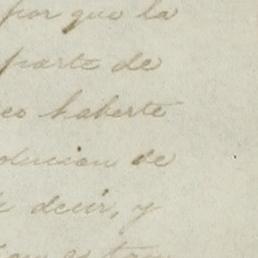 por que la
parte de
eo haberte
olucion de
decir, y